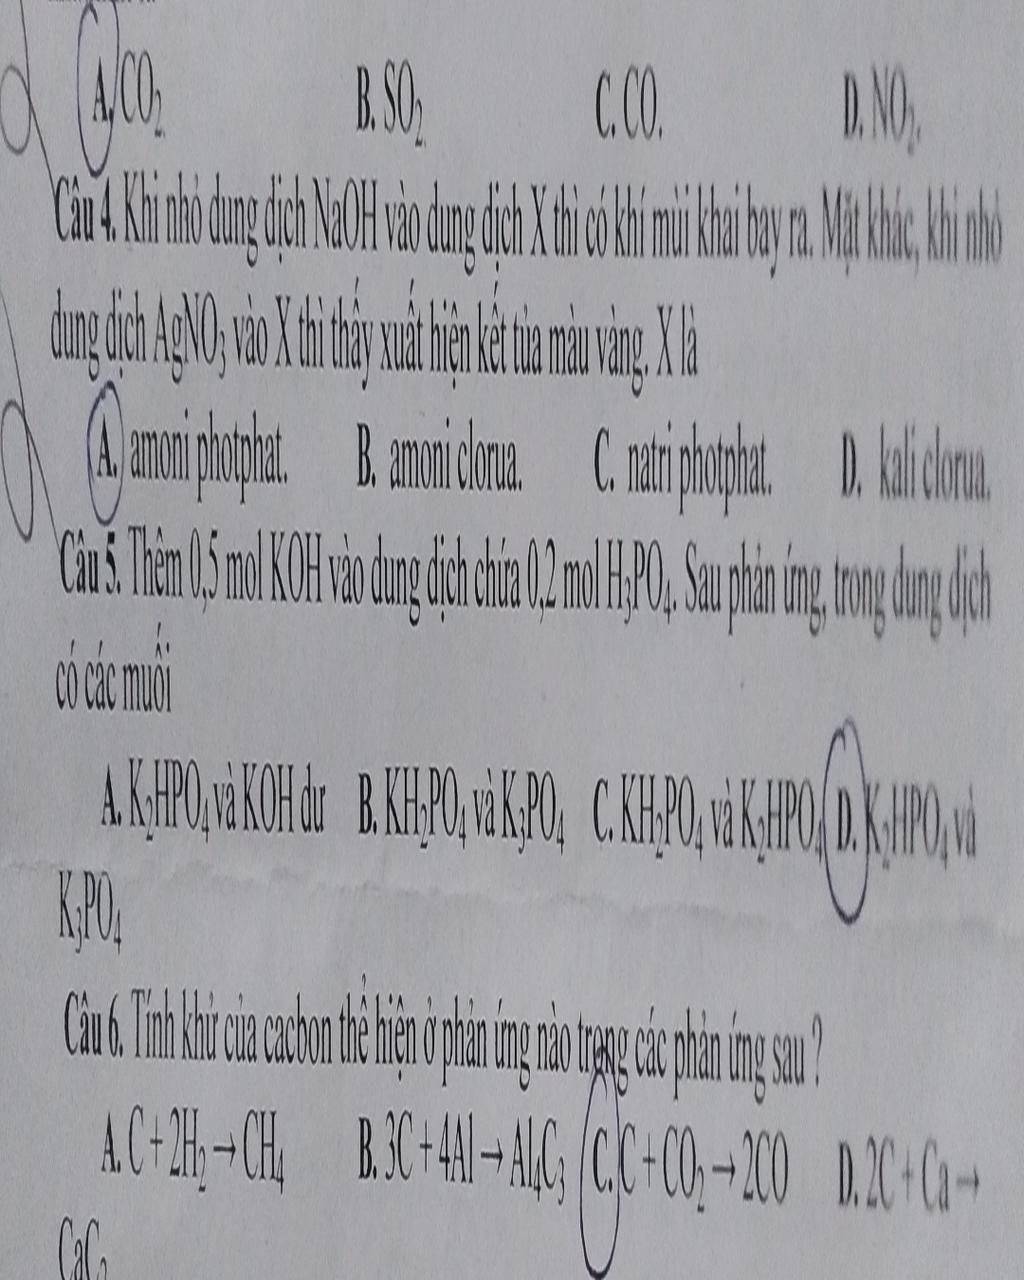 A. CO₂. B. SO₂. C. CO. D. NO₂.
Câu 4. Khi nhỏ dung dịch NaOH vào dung dịch X thì có khí mùi khai bay ra. Mặt khác, khi nhỏ
dung dịch AgNO₃ vào X thì thấy xuất hiện kết tủa màu vàng. X là
A. amoni photphat. B. amoni clorua. C. natri photphat. D. kali clorua.
Câu 5. Thêm 0,5 mol KOH vào dung dịch chứa 0,2 mol H₃PO₄. Sau phản ứng, trong dung dịch
có các muối
A. K₂HPO₄ và KOH dư B. KH₂PO₄ và K₃PO₄ C. KH₂PO₄ và K₂HPO₄ D. K₂HPO₄ và
K₃PO₄
Câu 6. Tính khử của cacbon thể hiện ở phản ứng nào trong các phản ứng sau ?
A. C + 2H₂ → CH₄ B. 3C + 4Al → Al₄C₃ C. C + CO₂ → 2CO D. 2C + Ca →
CaC₂